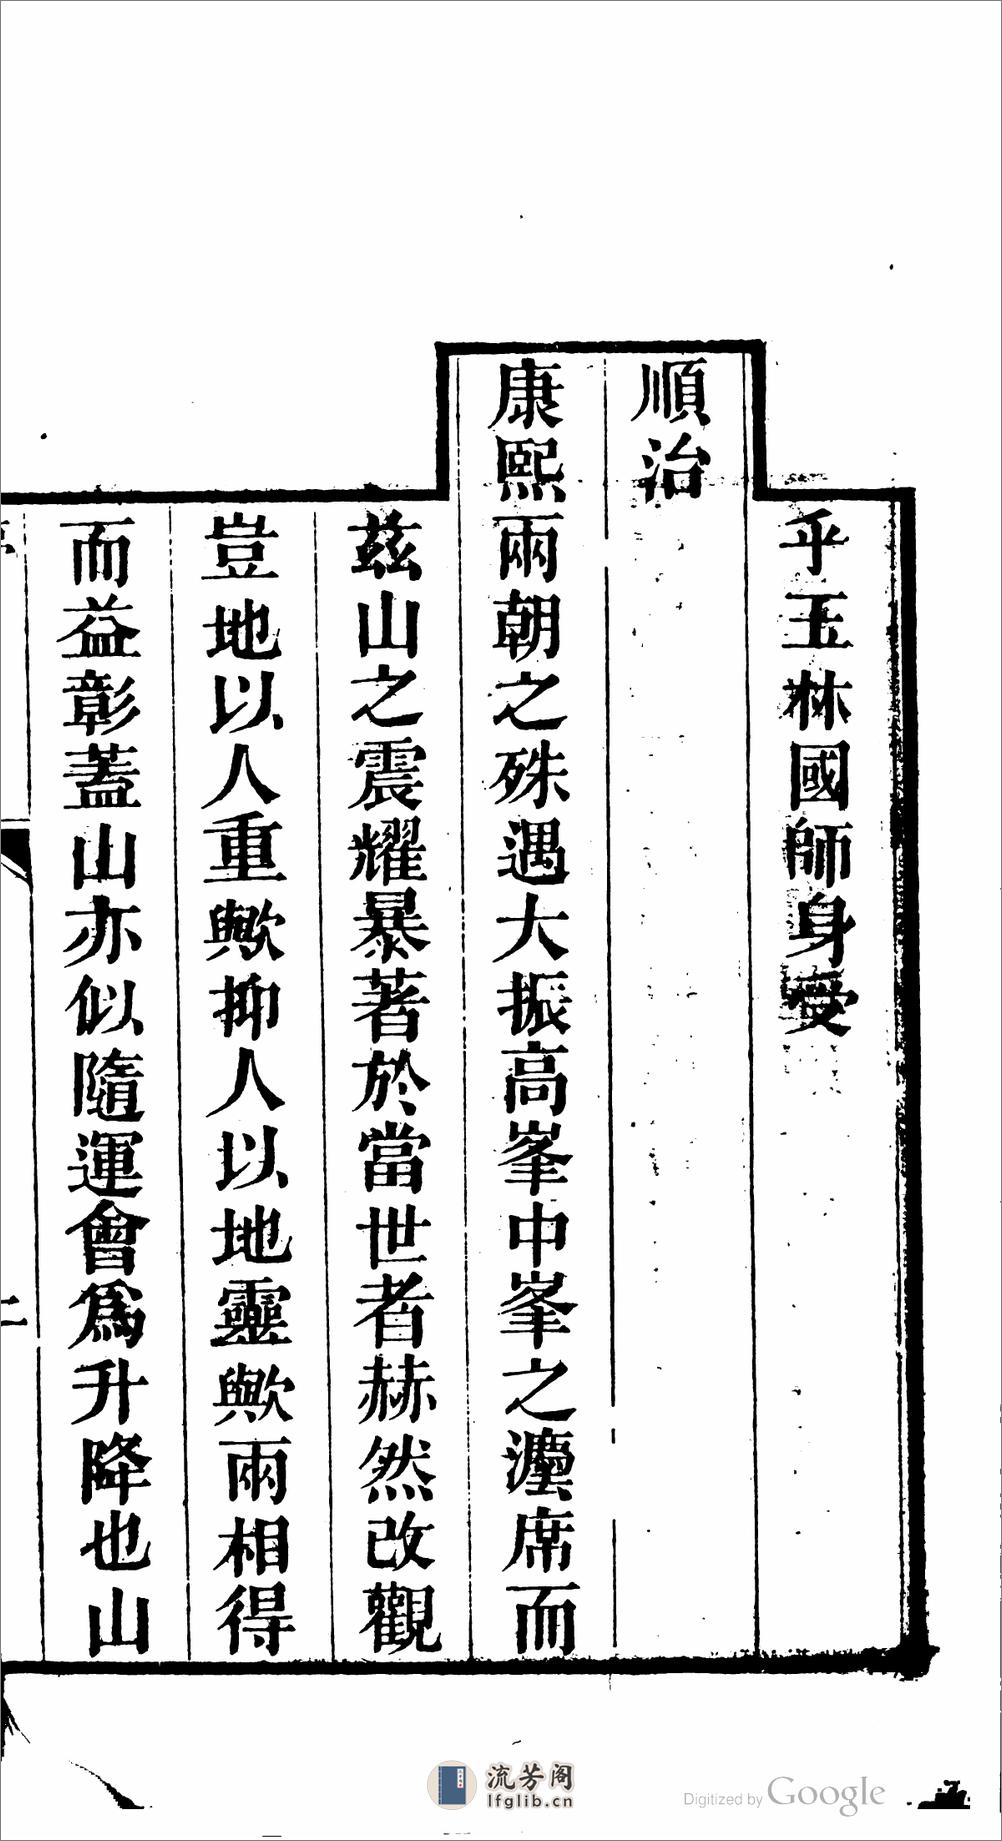 乎玉林國師身受
順治
康熙兩朝之殊遇大振高峯中峯之灋席而
茲山之震耀暴著於當世者赫然改觀
豈地以人重歟抑人以地靈歟兩相得
而益彰蓋山亦似隨運會爲升降也山
流芳阁
lfglib.cn
Digitized by Google